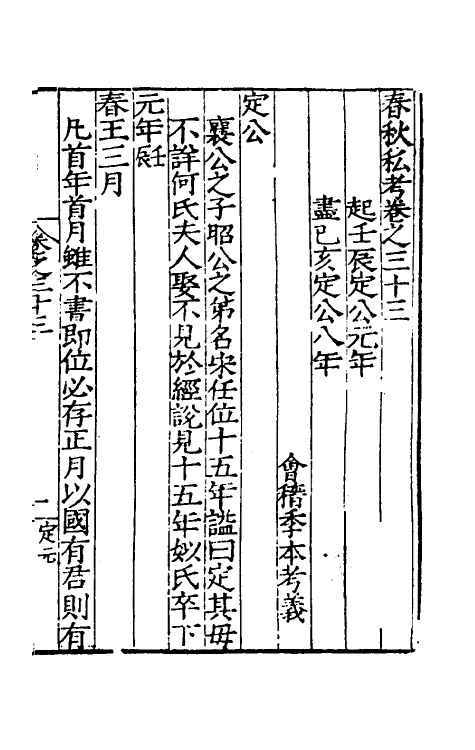 春秋私考卷之三十三
起壬辰定公元年
盡己亥定公八年
會稽季本考義
定公
襄公之子昭公之弟名宋任位十五年謚曰定其母
不詳何氏夫人娶不見於經說見十五年姒氏卒下
元年壬辰
春王三月
凡首年首月雖不書即位必存正月以國有君則有
卷之三十三
一
定元